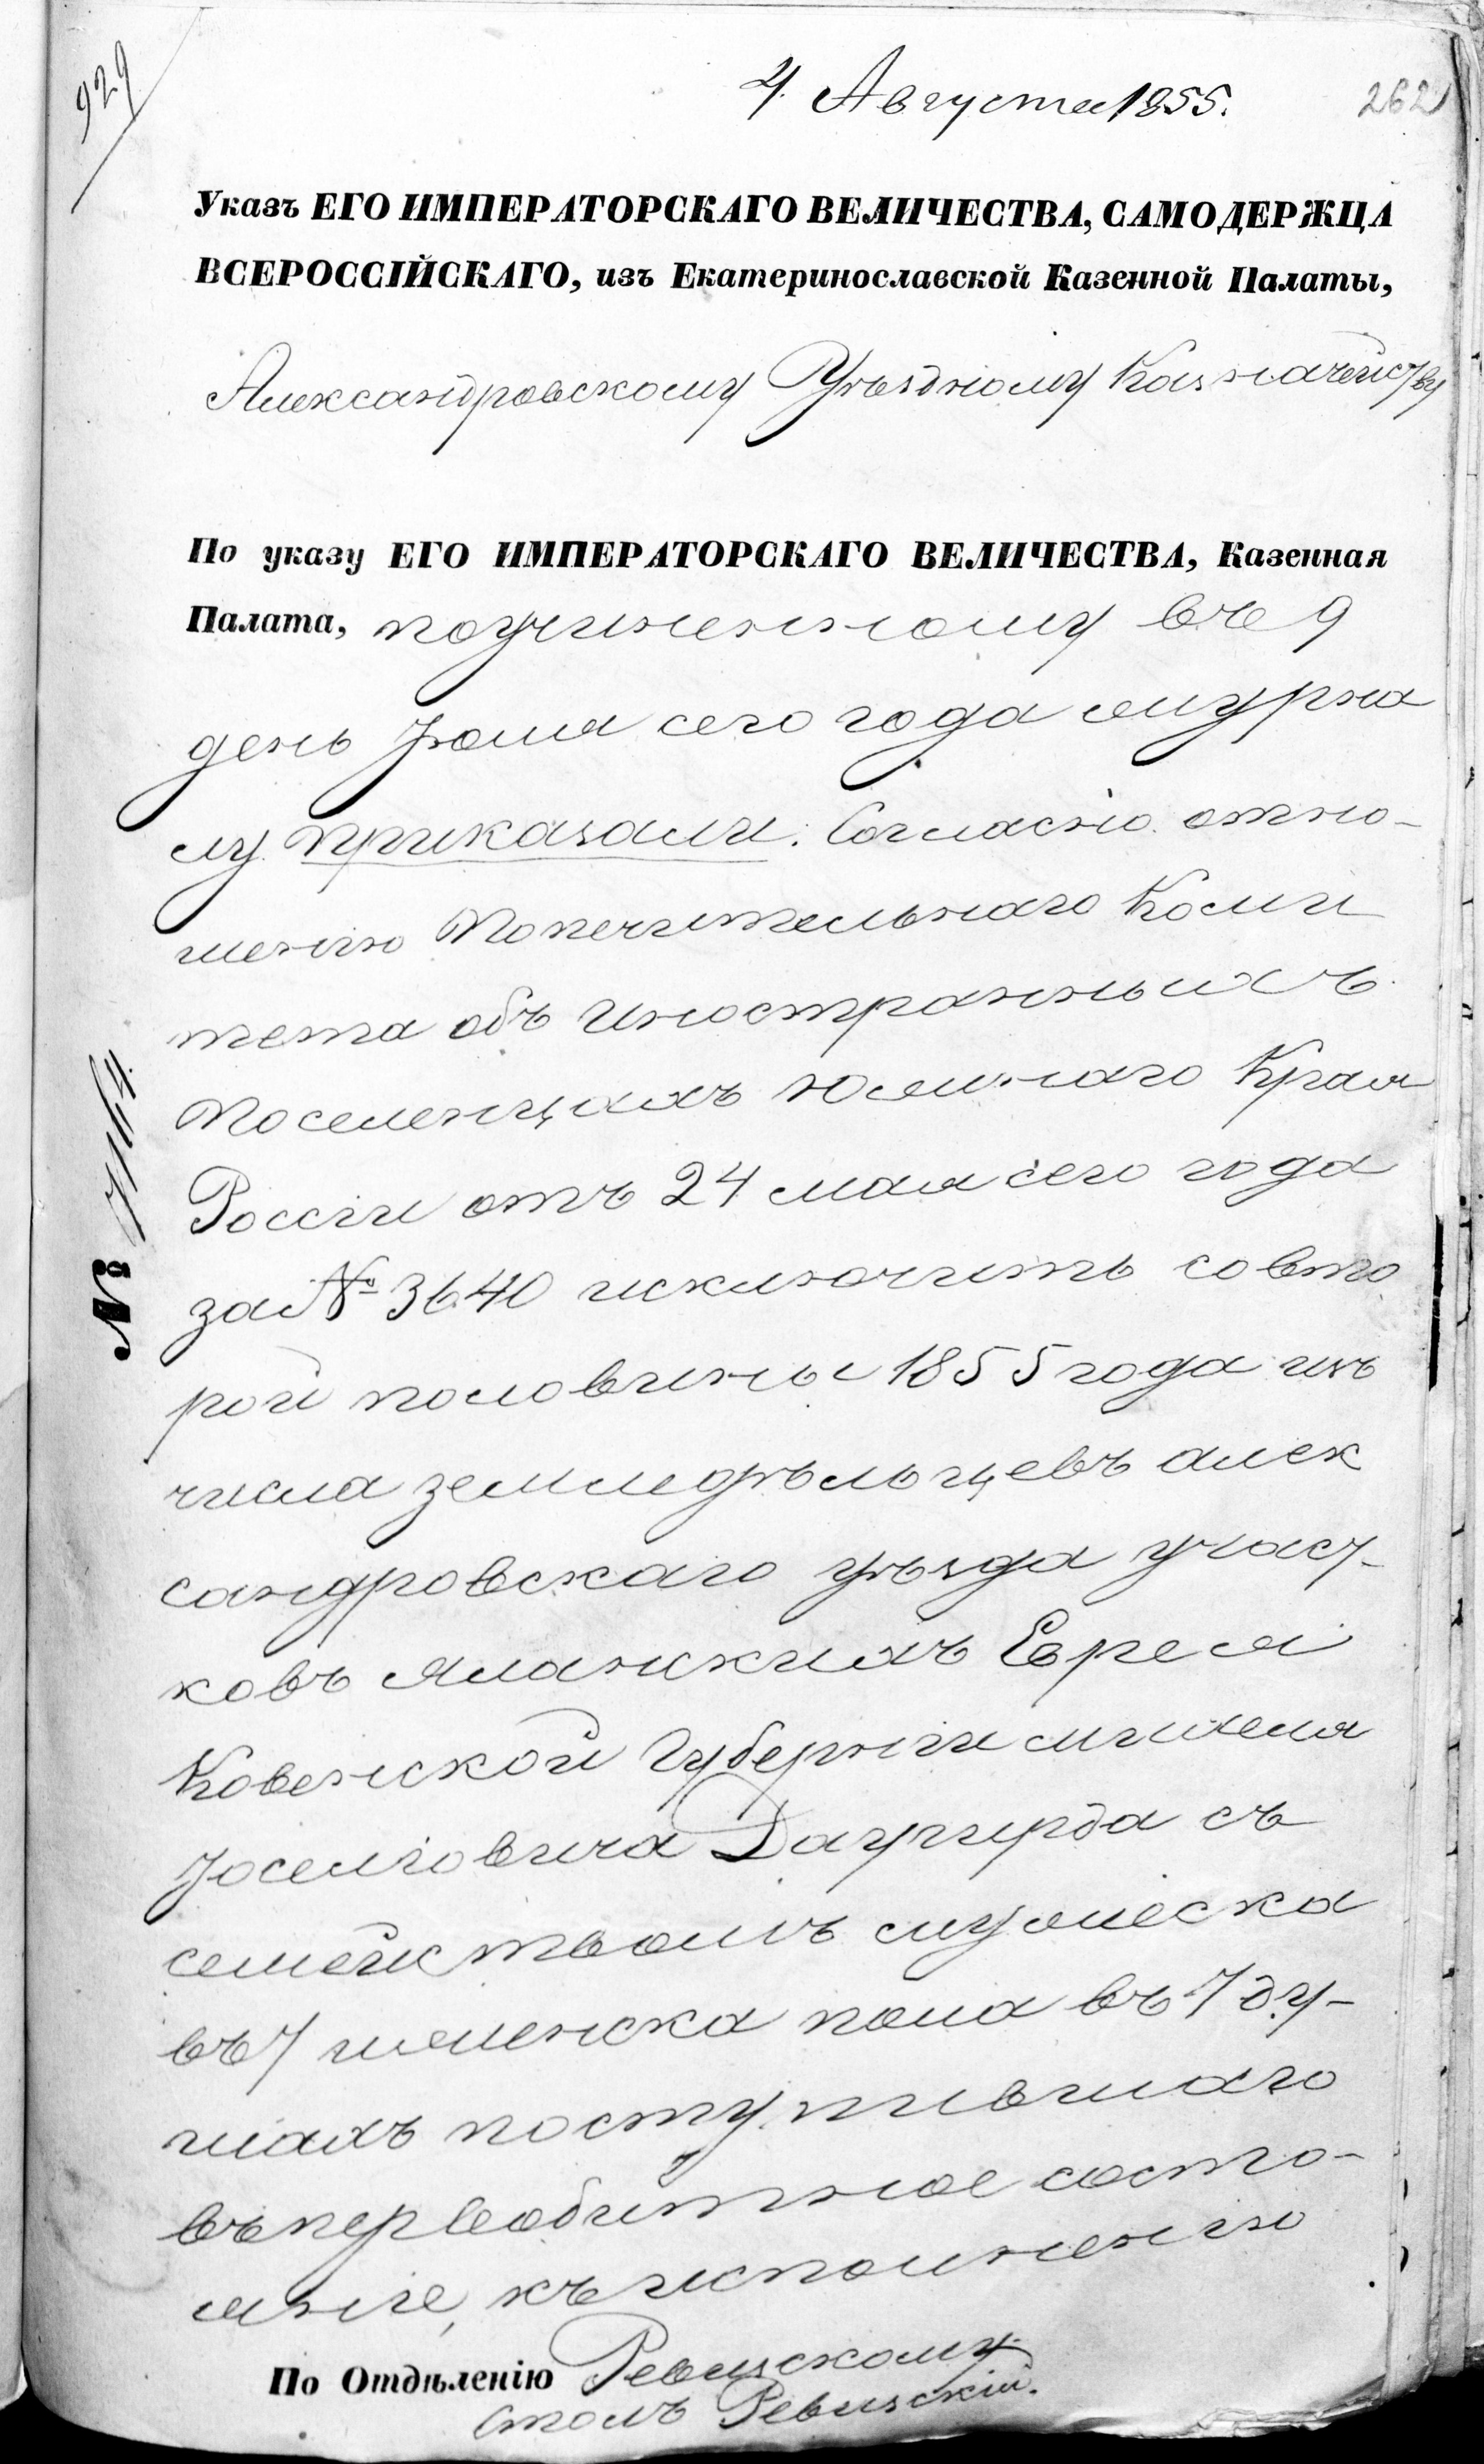 929
4 Августа 1855.
262
Указъ ЕГО ИМПЕРАТОРСКАГО ВЕЛИЧЕСТВА, САМОДЕРЖЦА
ВСЕРОССІЙСКАГО, изъ Екатеринославской Казенной Палаты,
Александровскому Уѣздному Казначейству
По указу ЕГО ИМПЕРАТОРСКАГО ВЕЛИЧЕСТВА, Казенная
Палата, по учиненному въ 9
день Іюля сего года журна
лу приказали: Согласно отно-
шенію Попечительнаго Коми
тета объ Иностранныхъ
Поселенцахъ Южнаго Края
Россіи отъ 24 мая сего года
за № 3640 исключить со вто
рой половины 1855 года изъ
числа земледѣльцевъ алек
сандровскаго уѣзда участ-
ковъ Еврея
Ковенской Губерніи михеля
Іоселіовича Даугирда съ
семействомъ мужеска
въ 7 и женска пола въ 7 ду-
шахъ поступившаго
въ первобытное состо-
яніе, къ исполненію
№
По Отдѣленію Ревизскому
Столъ Ревизскій.